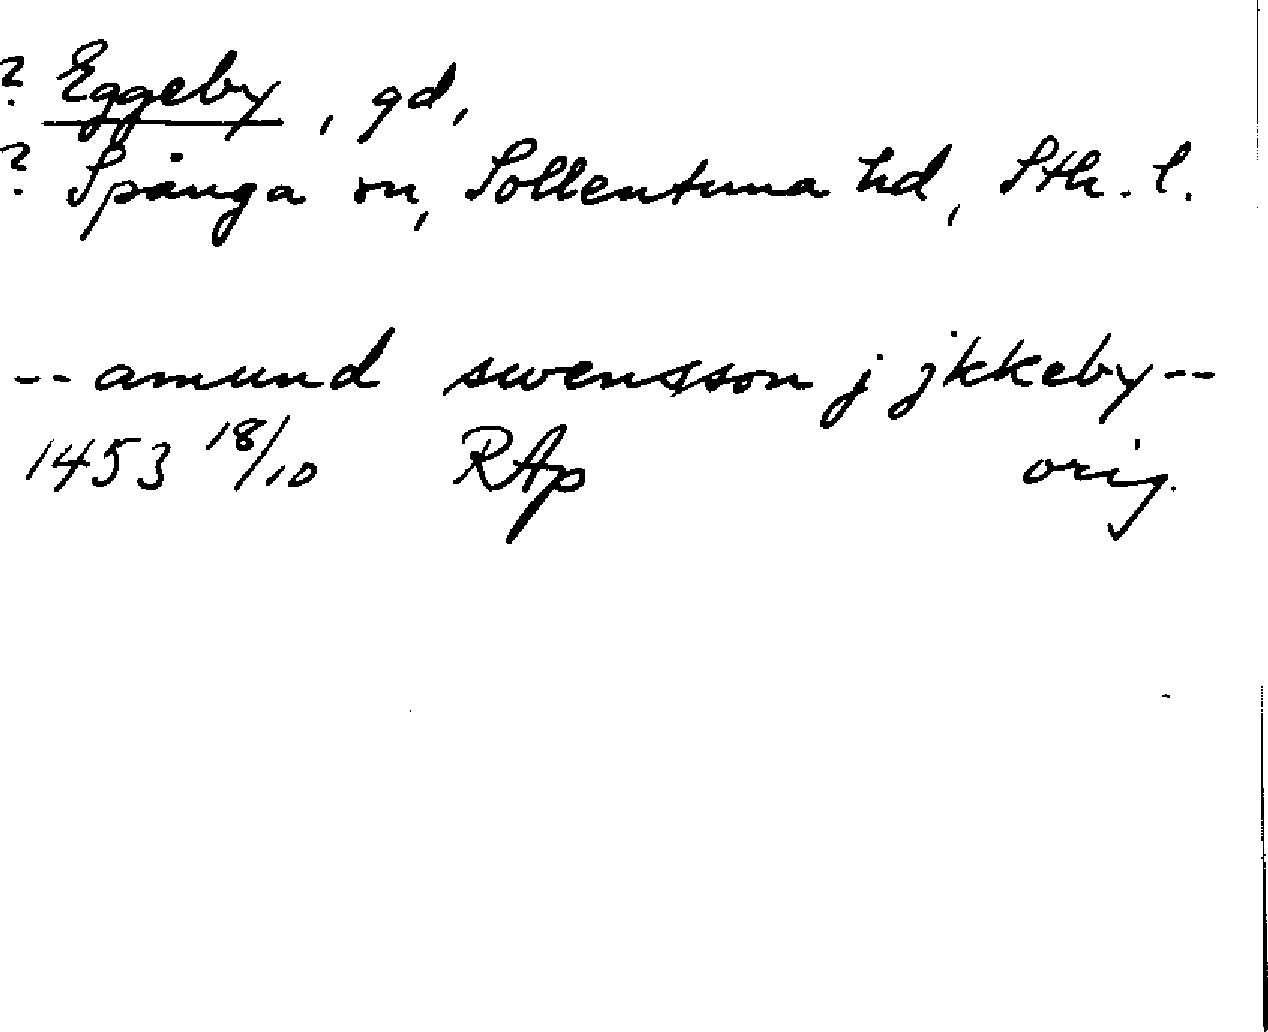 ? Eggeby, gd,
? Spånga sn, Sollentuna hd, Sth. l.
-- amund swensson j jkkeby --
1453 18/10 RAp orig.